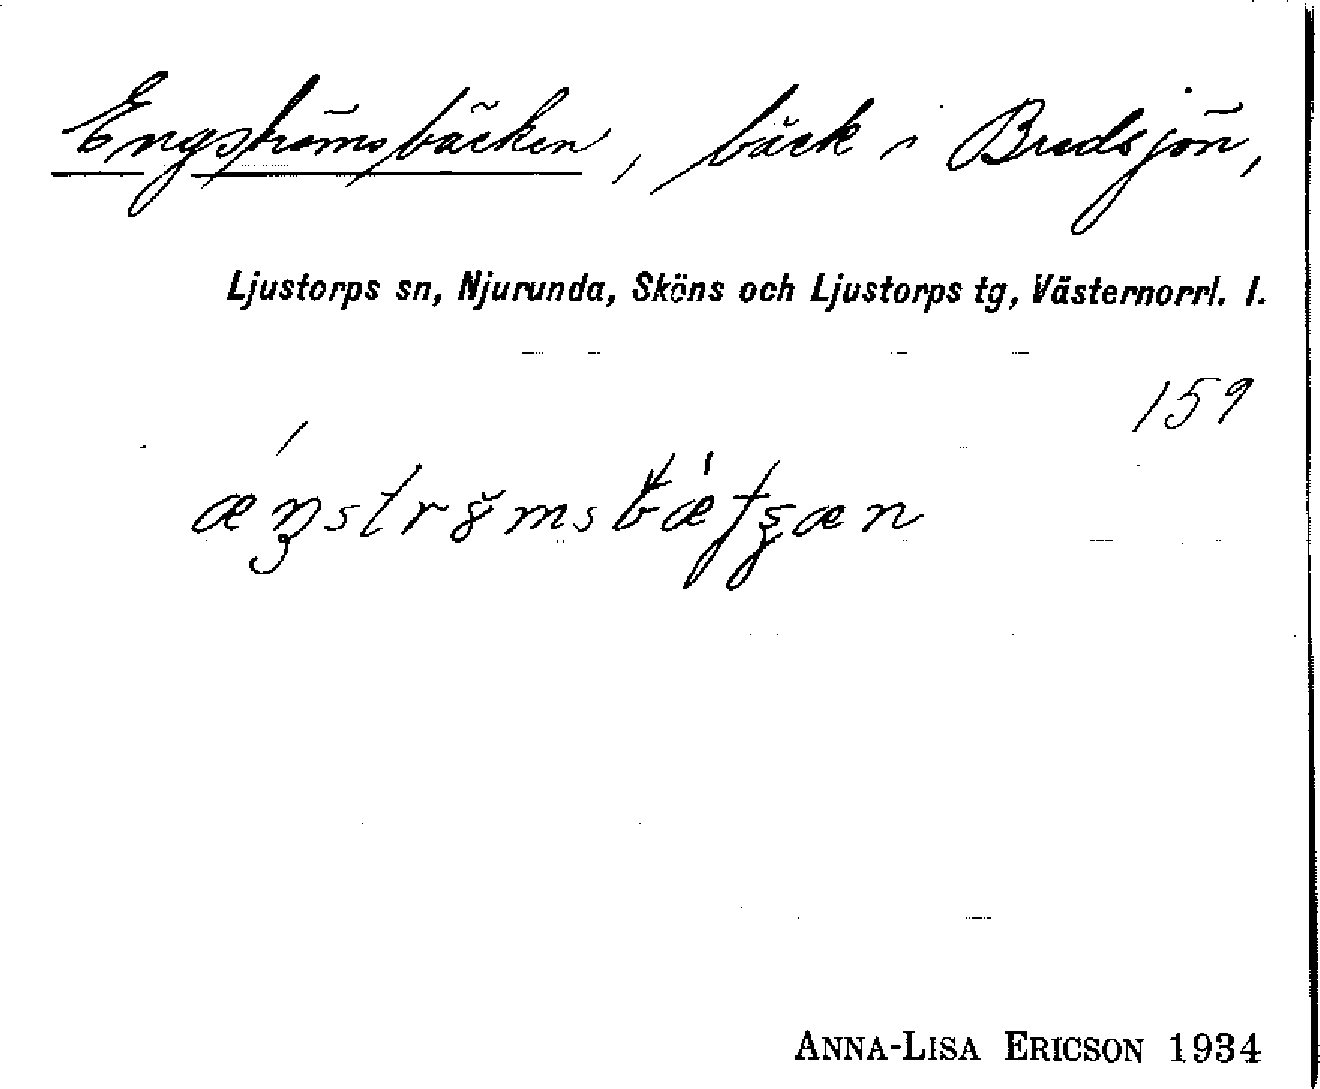 Engströmsbäcken, bäck i Bredsjön,
Ljustorps sn, Njurunda, Sköns och Ljustorps tg, Västernorrl. l.
159
ANNA-LISA ERICSON 1934